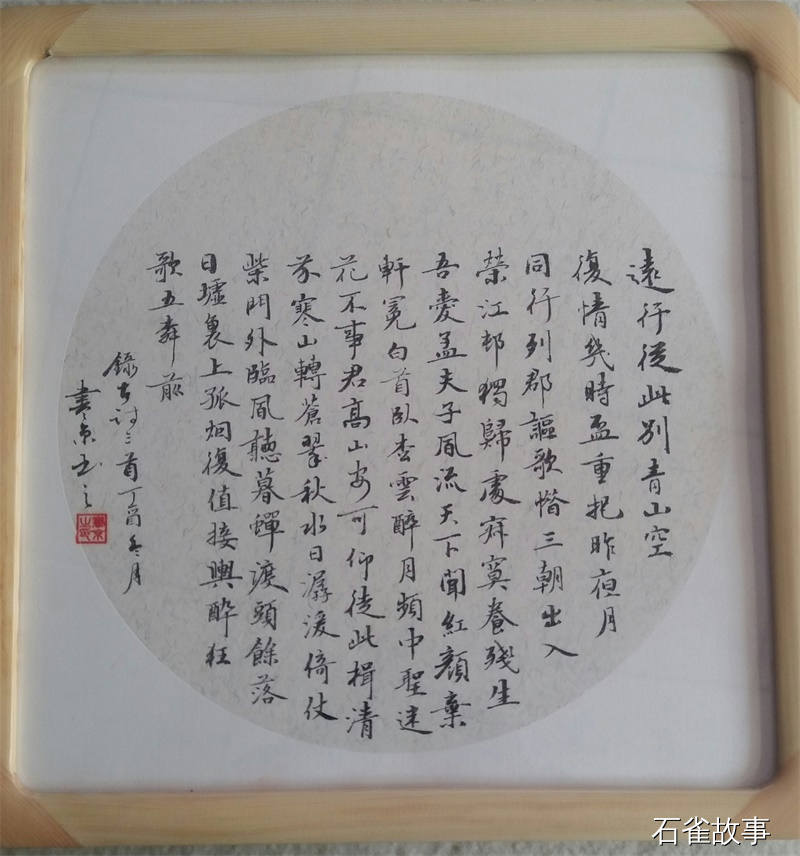 遠行從此別青山空
復情幾時盃重把昨夜月
同行列郡謳歌惜三朝出入
榮江邨獨歸處寂寞養殘生
吾愛孟夫子風流天下聞紅顏棄
軒冕白首臥雲醉月頻中聖迷
花不事君高山安可仰徒此揖清
芬寒山轉蒼翠秋水日潺湲倚仗
柴門外臨風聽暮蟬渡頭餘落
日墟裏上孤烟復值接輿醉狂
歌五前
錄古詩三首丁酉冬月
石雀故事